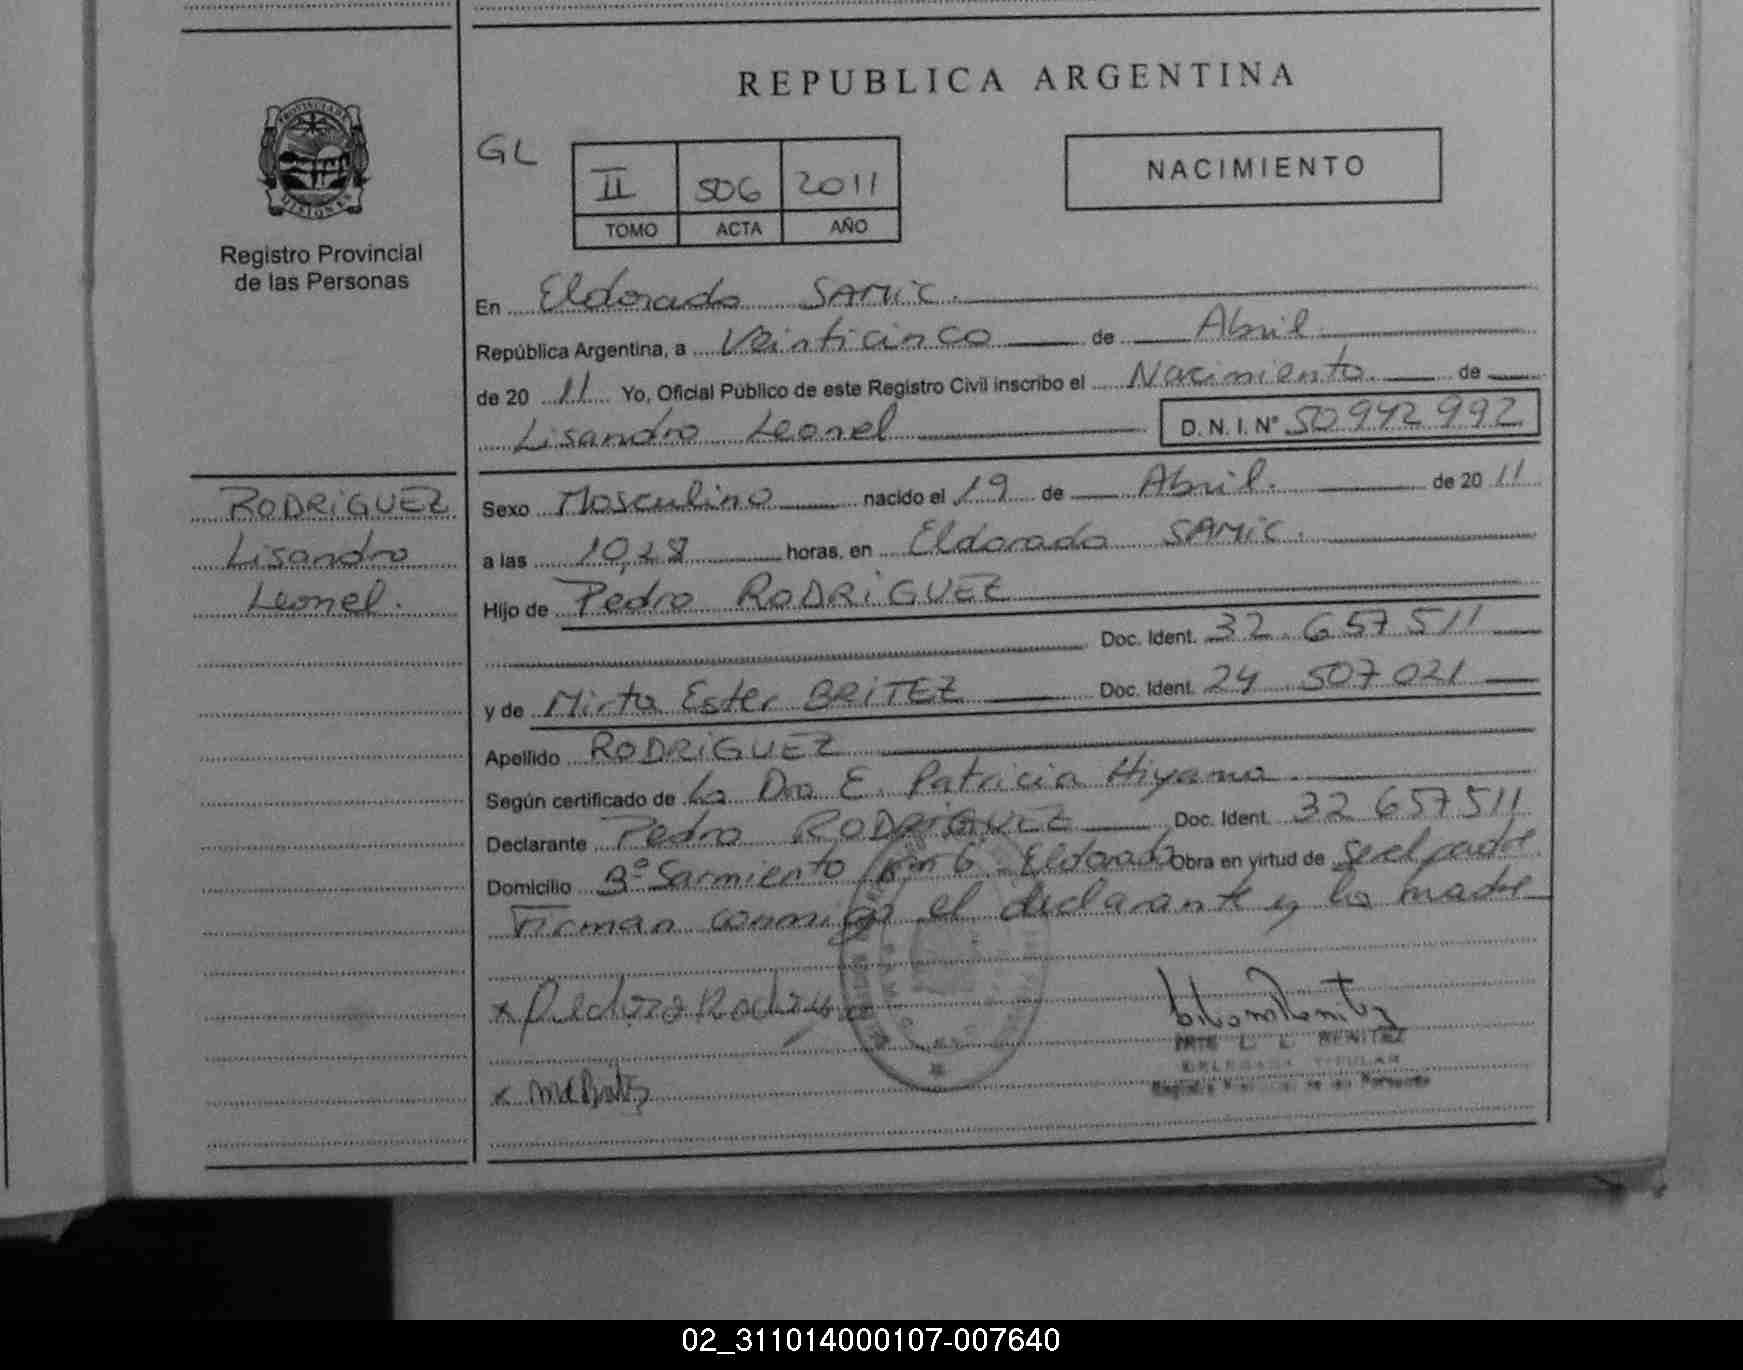 REPUBLICA ARGENTINA
PROVINCIA DE MISIONES
Registro Provincial
de las Personas
GL
II 506 2011
TOMO ACTA AÑO
NACIMIENTO
En Eldorado SAMiC.
República Argentina, a Veinticinco de Abril
de 20 11 Yo, Oficial Público de este Registro Civil inscribo el Nacimiento de
Lisandro Leonel D. N. I. Nº 50 942 992
RODRiGUEZ
Lisandro
Leonel.
Sexo Masculino nacido el 19 de Abril. de 20 11
a las 10,28 horas, en Eldorado SAMiC.
Hijo de Pedro RODRiGUEZ
Doc. Ident. 32 657 511
y de Mirta Ester BRiTEZ Doc. Ident. 24 507 021
Apellido RODRiGUEZ
Según certificado de La Dra E. Patricia Hiyama
Declarante Pedro RODRiGUEZ Doc. Ident. 32 657 511
Domicilio Bº Sarmiento km 6 Eldorado Obra en virtud de ser el padre
Firman conmigo el declarante y la madre
L. L. BENITEZ
DELEGADA TITULAR
Registro Provincial de las Personas
02_311014000107-007640